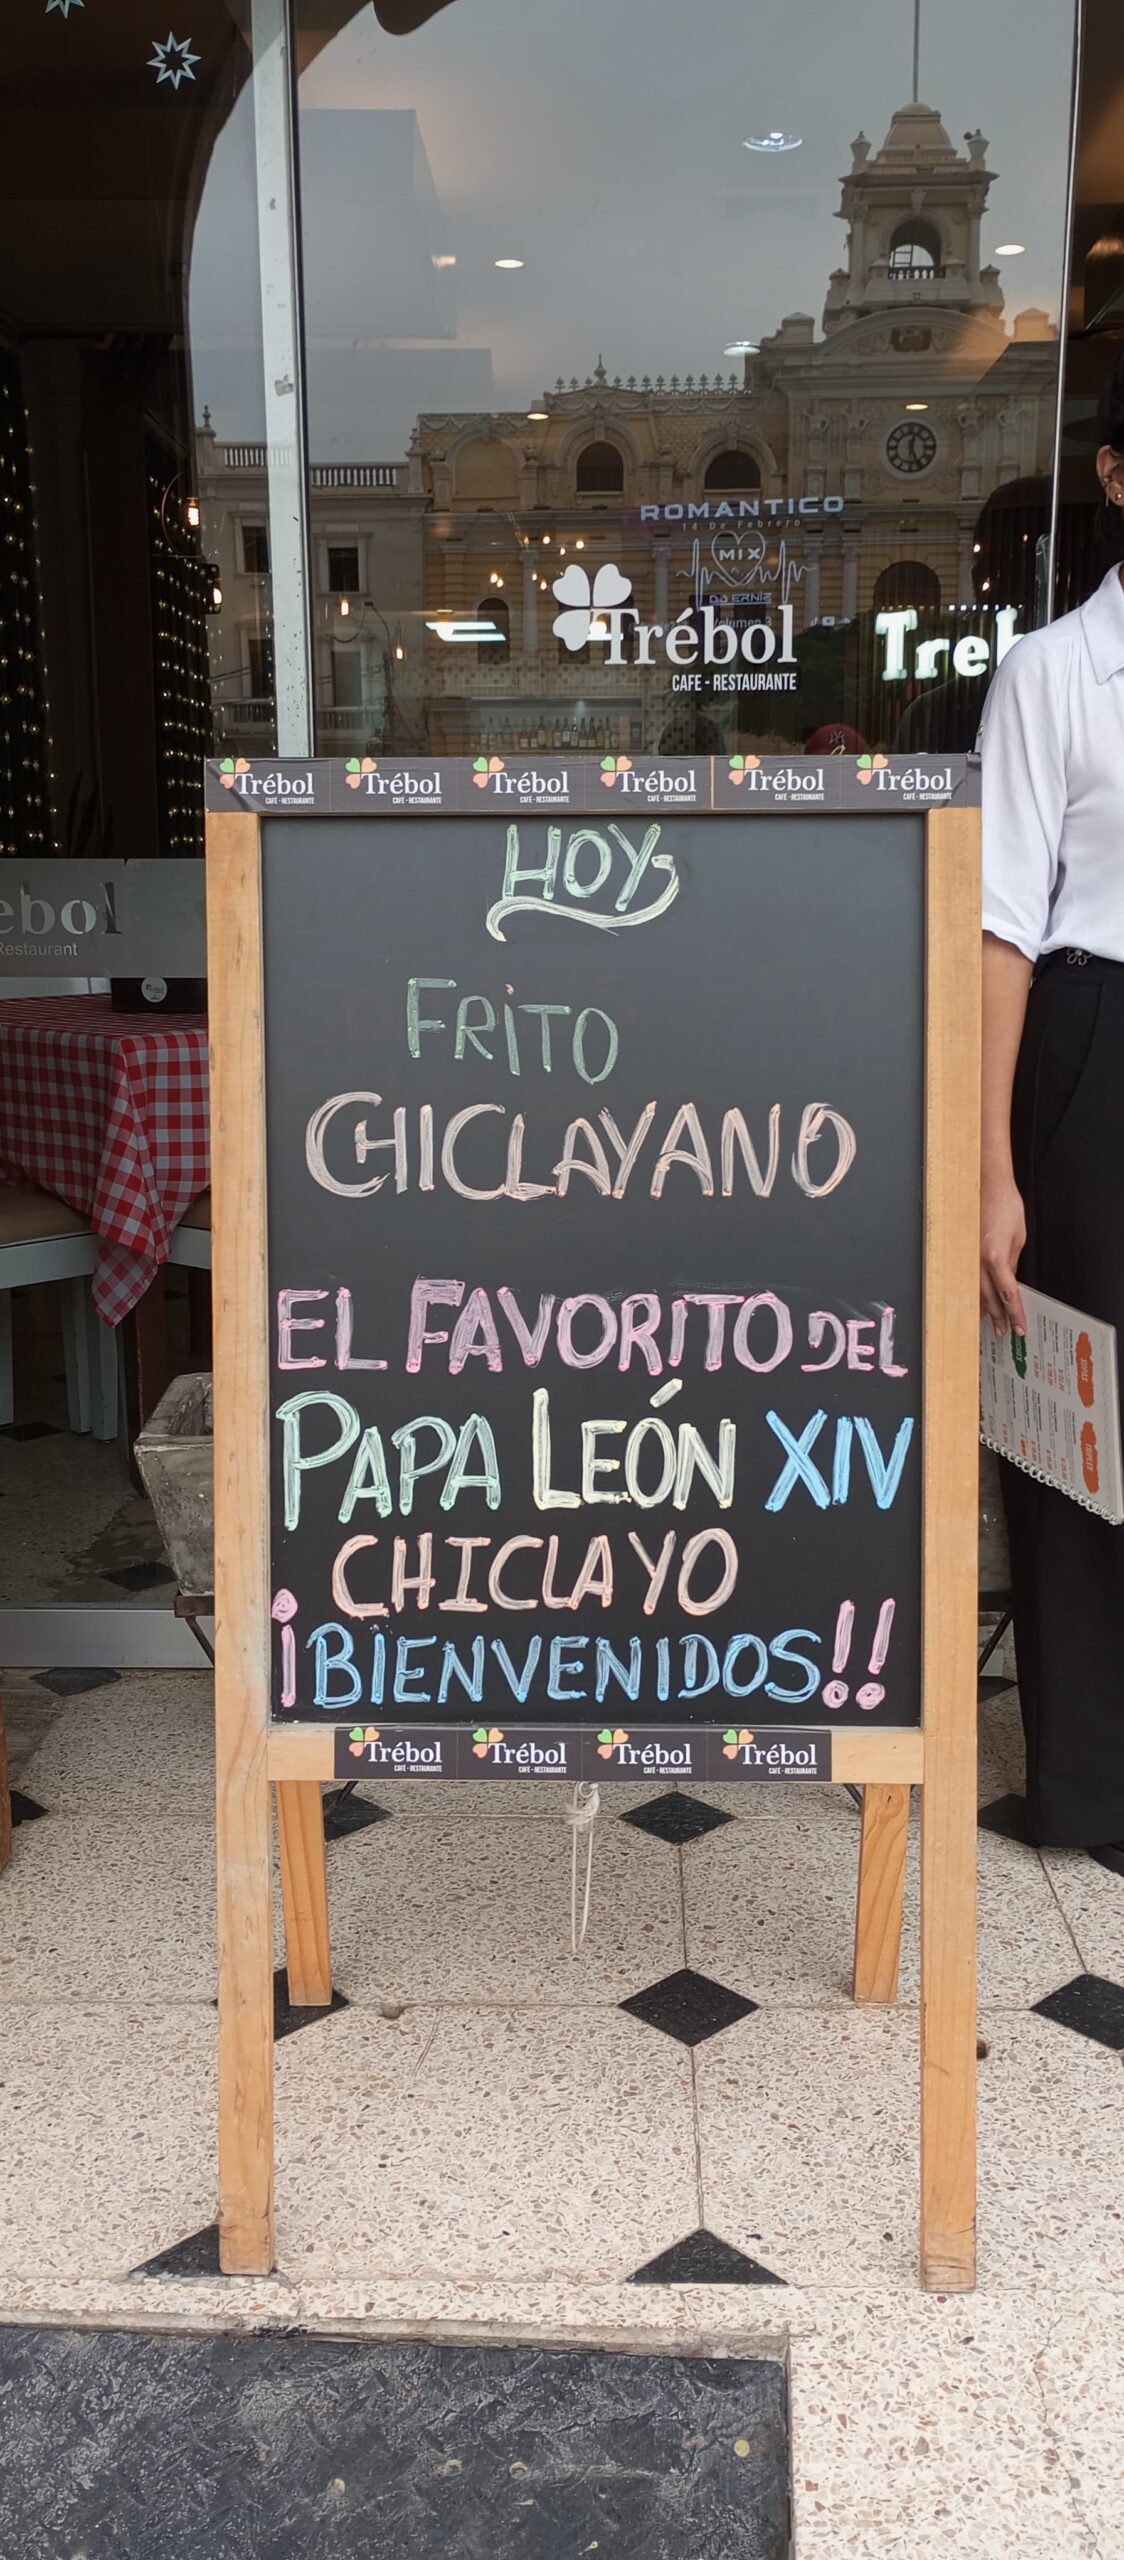 ROMANTICO
14 De Febrero
MIX
DJ ERNIE
Volumen 3
Trébol
CAFE - RESTAURANTE
Treb
Trébol Trébol Trébol Trébol Trébol Trébol
CAFÉ - RESTAURANTE CAFÉ - RESTAURANTE CAFÉ - RESTAURANTE CAFÉ - RESTAURANTE CAFÉ - RESTAURANTE CAFÉ - RESTAURANTE
ebol
Restaurant
HOY
FRITO
CHICLAYANO
EL FAVORITO DEL
PAPA LEÓN XIV
CHICLAYO
¡BIENVENIDOS!!
Trébol Trébol Trébol Trébol
CAFÉ - RESTAURANTE CAFÉ - RESTAURANTE CAFÉ - RESTAURANTE CAFÉ - RESTAURANTE
SOPAS
TRIPLES